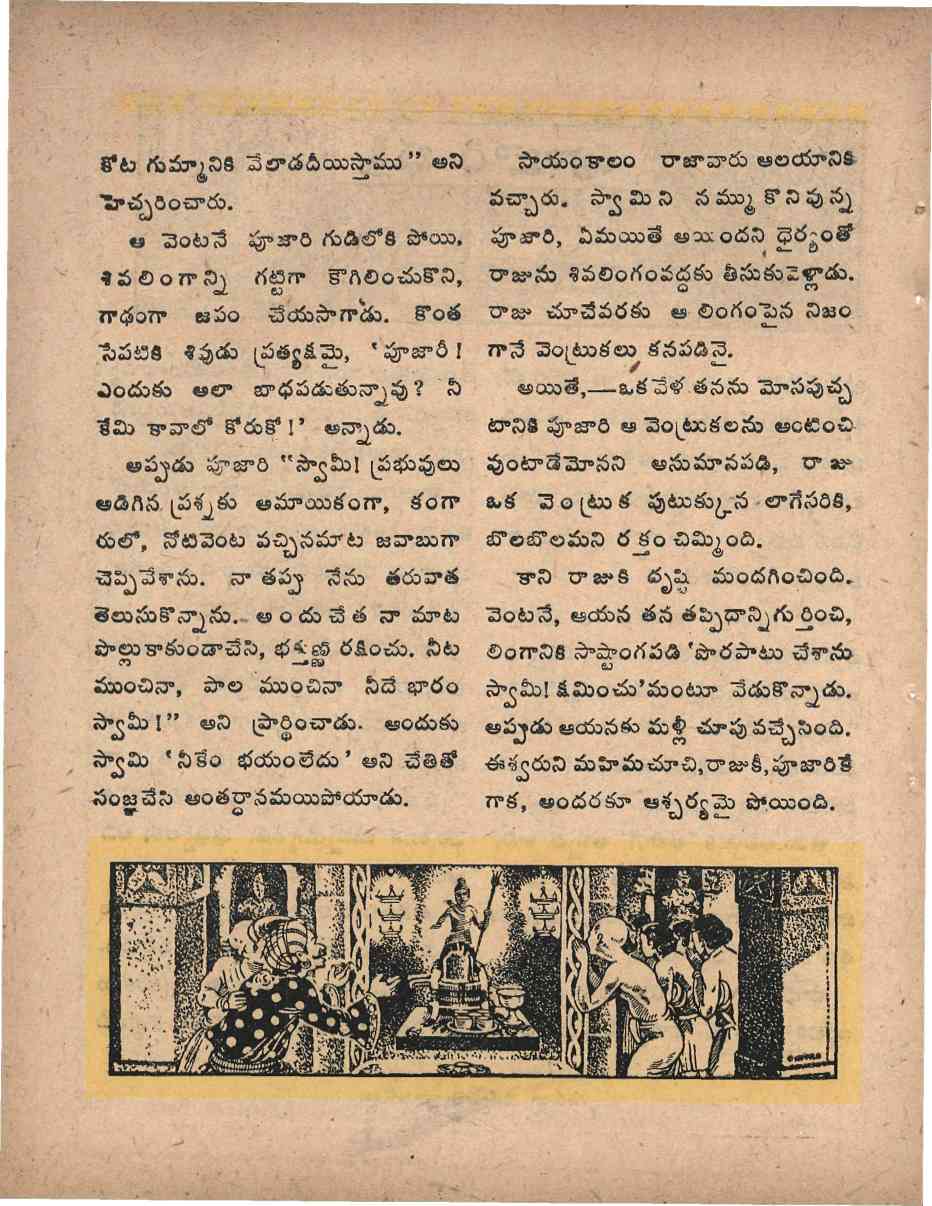 కోట గుమ్మానికి వేలాడదీయిస్తాము" అని
హెచ్చరించారు.
ఆ వెంటనే పూజారి గుడిలోకి పోయి,
శివలింగాన్ని గట్టిగా కౌగిలించుకొని,
గాఢంగా జపం చేయసాగాడు. కొంత
సేపటికి శివుడు ప్రత్యక్షమై, 'పూజారీ!
ఎందుకు అలా బాధపడుతున్నావు? నీ
కేమి కావాలో కోరుకో!' అన్నాడు.
అప్పుడు పూజారి "స్వామీ! ప్రభువులు
అడిగిన ప్రశ్నకు అమాయికంగా, కంగా
రులో, నోటివెంట వచ్చినమాట జవాబుగా
చెప్పివేశాను. నా తప్పు నేను తరువాత
తెలుసుకొన్నాను. అందుచేత నా మాట
పొల్లుకాకుండాచేసి, భక్తుణ్ణి రక్షించు. నీట
ముంచినా, పాల ముంచినా నీదే భారం
స్వామీ!" అని ప్రార్థించాడు. అందుకు
స్వామి 'నీకేం భయంలేదు' అని చేతితో
సంజ్ఞచేసి అంతర్ధానమయిపోయాడు.
సాయంకాలం రాజావారు ఆలయానికి
వచ్చారు. స్వామిని నమ్ముకొనివున్న
పూజారి, ఏమయితే అయిందని ధైర్యంతో
రాజును శివలింగంవద్దకు తీసుకువెళ్లాడు.
రాజు చూచేవరకు ఆ లింగంపైన నిజం
గానే వెంట్రుకలు కనపడినై.
అయితే,—ఒకవేళ తనను మోసపుచ్చ
టానికి పూజారి ఆ వెంట్రుకలను అంటించి
వుంటాడేమోనని అనుమానపడి, రాజు
ఒక వెంట్రుక పుటుక్కున లాగేసరికి,
బొలబొలమని రక్తం చిమ్మింది.
కాని రాజుకి దృష్టి మందగించింది.
వెంటనే, ఆయన తన తప్పిదాన్నిగుర్తించి,
లింగానికి సాష్టాంగపడి 'పొరపాటు చేశాను
స్వామీ! క్షమించు'మంటూ వేడుకొన్నాడు.
అప్పుడు ఆయనకు మళ్లీ చూపు వచ్చేసింది.
ఈశ్వరుని మహిమచూచి, రాజుకీ, పూజారికే
గాక, అందరకూ ఆశ్చర్యమై పోయింది.